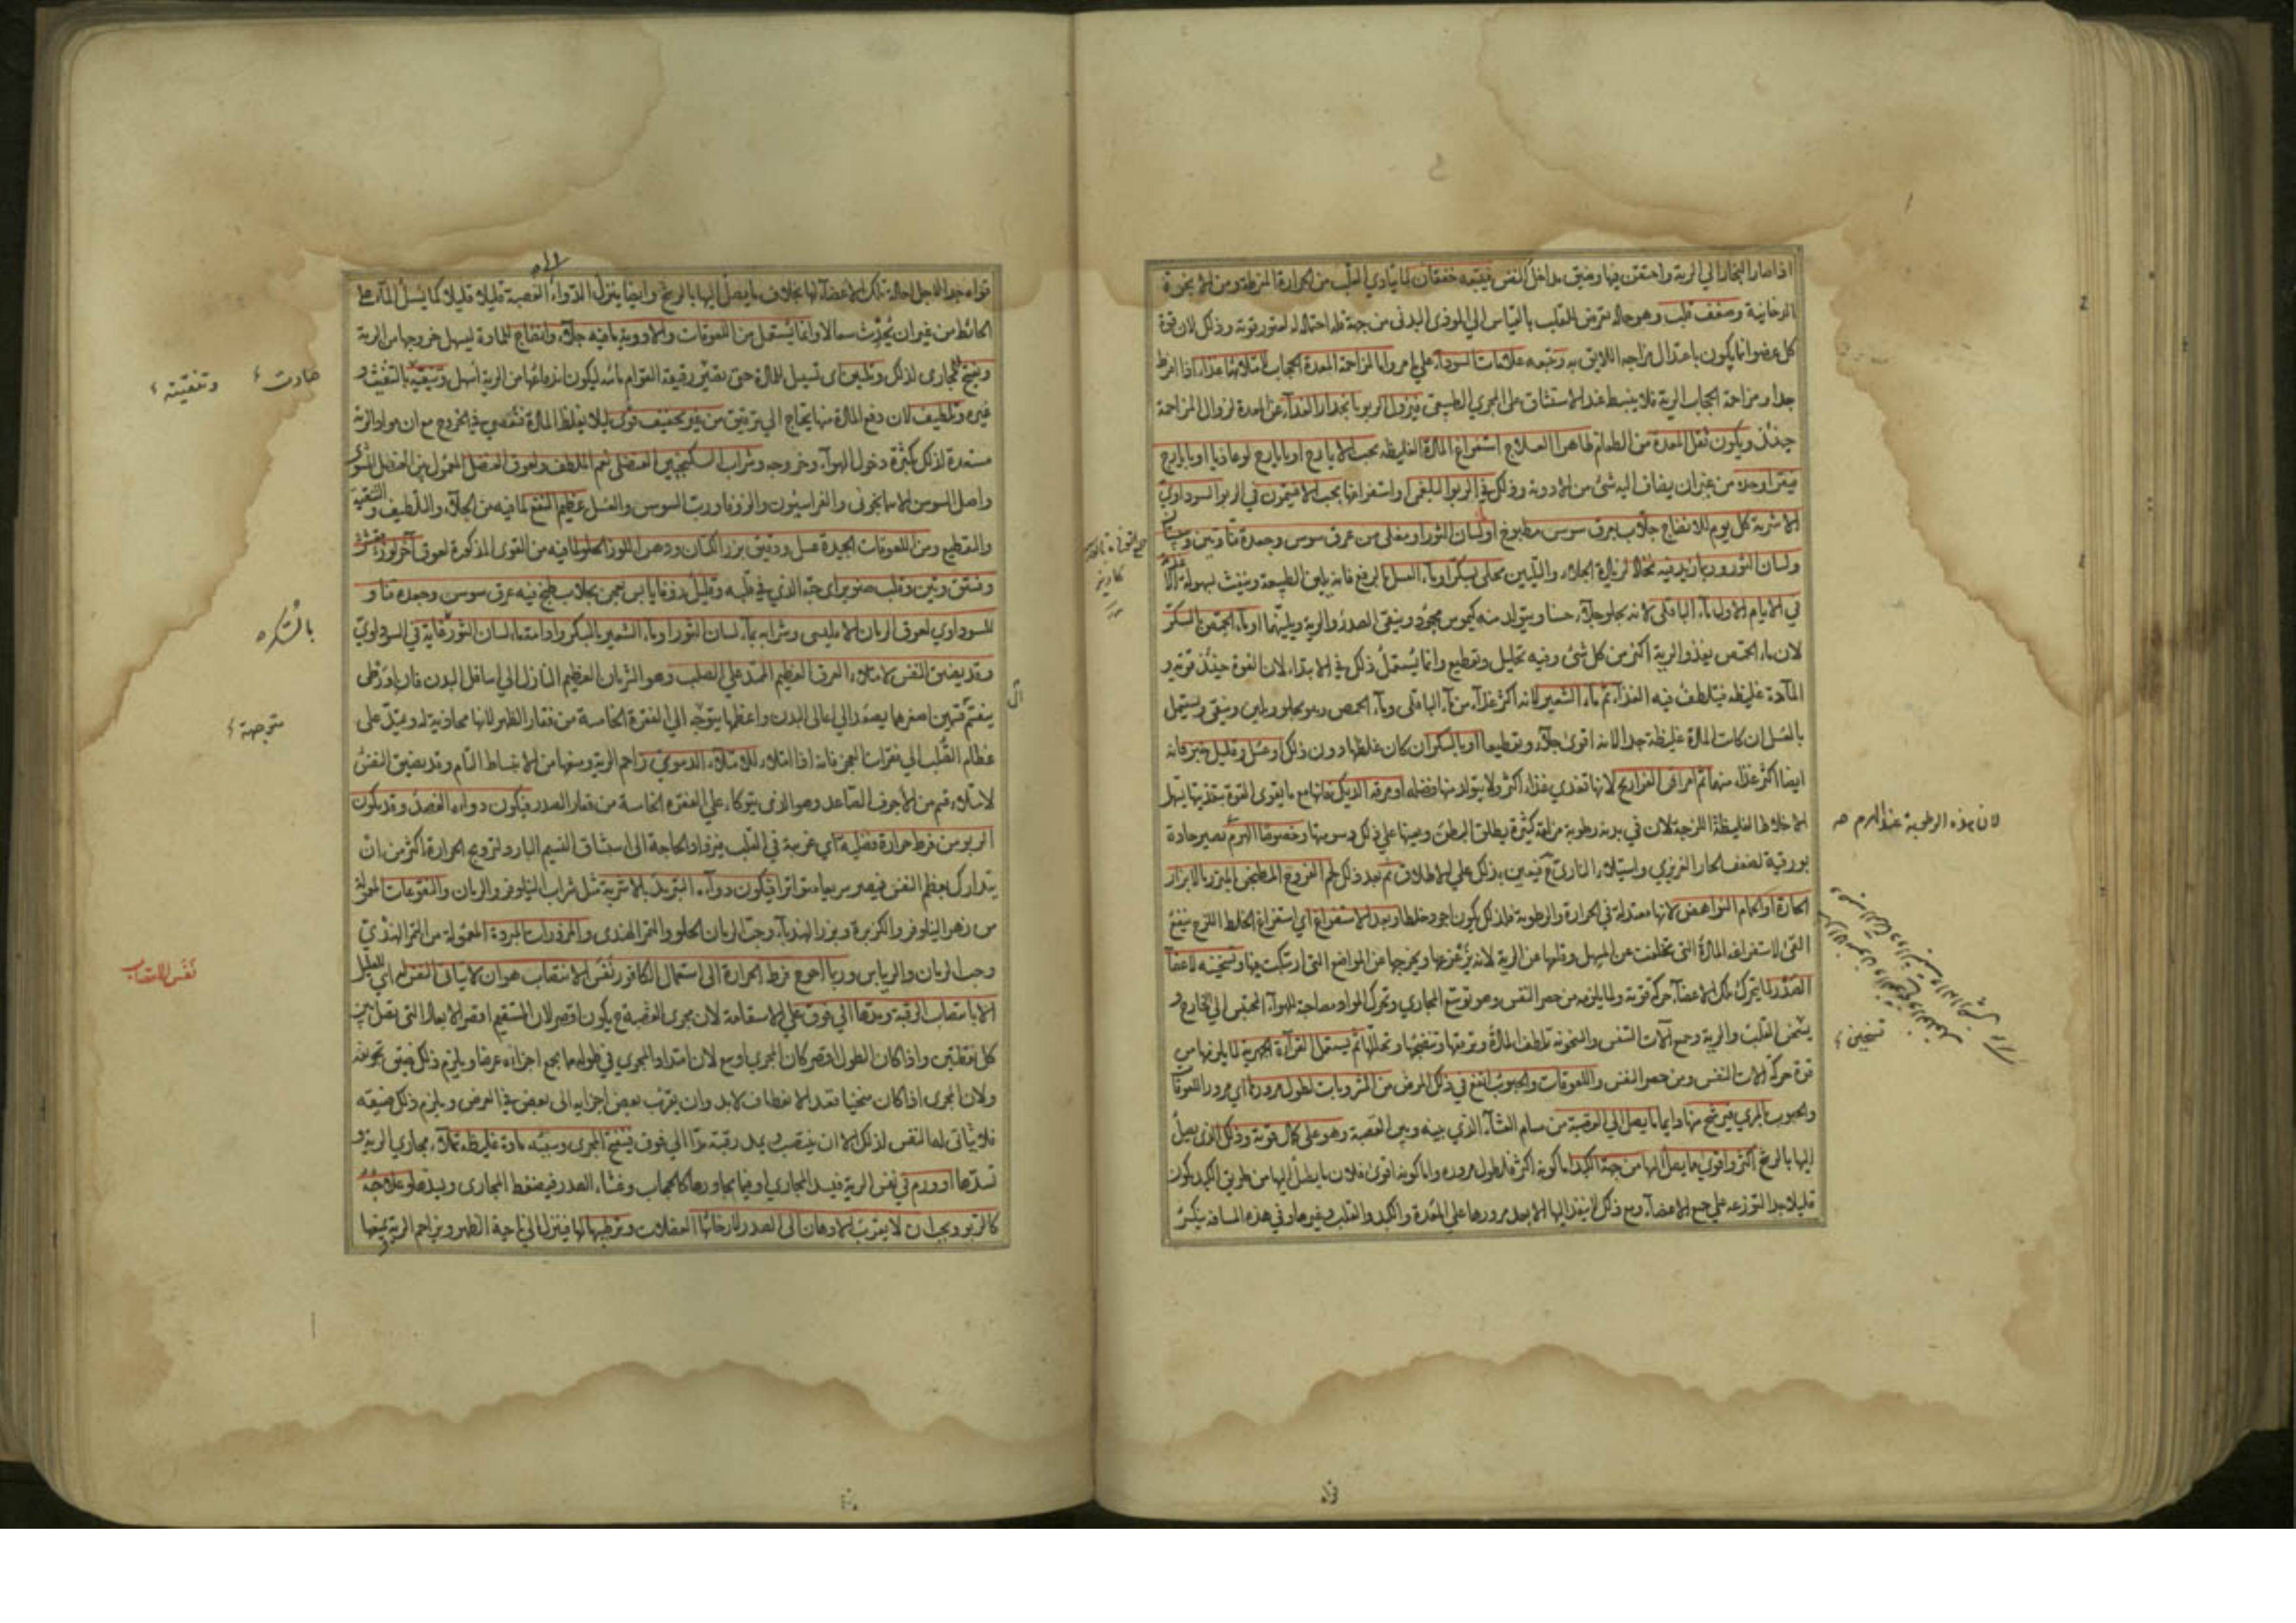 اذا صار البخار الي الرية واحتقن فيها وضيق مداخل النفس فيتبعه خفقان لما يتادي القلب من الحرارة المفرطة ومن الابخرة
الدخانية وضعف قلب وهو حالة تعرض للقلب بالقياس الي الموذي البدني من جهة قلة احتماله له لفتور قوته وذلك لان قوة
كل عضو انما يكون باعتدال مزاجه اللايق به وتتبعه علامات السوداء علي ما مر واما لمزاحمة المعدة الحجاب لامتلائها غذاء اذا افرط
جدا ومزاحمة الحجاب الرية فلا ينبسط عند الاستنشاق على المجري الطبيعي فيزول الربو بانحدار الغذاء عن المعدة لزوال المزاحمة
حينئذ ويكون ثقل المعدة من الطعام ظاهرا العلاج استفراغ المادة الغليظة بحب الايارج او بايارج لوغاذيا او بايارج
فيقرا وحده من غير ان يضاف اليه شئ من الادوية وذلك في الربو البلغمي واستفراغها بحب الافتيمون في الربو السوداوي
الاشربة كل يوم للانضاج جلاب بعرق سوس مطبوخ او لسان الثور او مغلي من عرق سوس وجعدة قنا وتين
ولسان الثور وربما زيد فيه نخالة لزيادة الجلاء والتليين محلى بسكر او ماء العسل
في الايام الاول ماء الباقلى لانه يجلو جلاء حسنا ويتولد منه كيموس محمود وينقى الصدر والرية ويلينهما او ماء الحمص بالسكر
لان ماء الحمص يغذو الرية اكثر من كل شئ وفيه تحليل وتقطيع وانما يستعمل ذلك في الابتداء لان القوة حينئذ قوية و
المادة غليظة فيتلطف فيه الغذاء ثم ماء الشعير لانه اكثر غذاء من ماء الباقلى وماء الحمص وهو يجلو ويلين وينقي ويستعمل
بالعسل ان كانت المادة غليظة جدا لانه اقوى جلاء وتقطيعا او بالسكر ان كان غلظها دون ذلك او عسل وقليل خبز فانه
ايضا اكثر غذاء منهما ثم امراق الفراريج لانها تغذي غذاء اكثر ولا يتولد منها فضلة او مرقة الديك فانها مع ما يقوي القوة بتغذيتها يسهل
الاخلاط الغليظة اللزجة لان في بدنه رطوبة مزلقة كثيرة يطلق البطن ويعينها علي ذلك دسومتها وخصوصا الهرم تصير حادة
بورقية لضعف الحار الغريزي واستيلاء الناري فيعين بذلك علي الاطلاق ثم بعد ذلك لحم الفروج المطجن المبزر بالابزار
الحارة او الحمام النواهض لانها معتدلة في الحرارة والرطوبة فلذلك يكون اجود خلطا وبعد الاستفراغ اي استفراغ الخلط اللزج ينفع
القئ لاستفراغه المادة التي تخلفت عن المسهل وقلعها عن الرية لانه يزعزعها ويخرجها عن المواضع التي ارتبكت فيها وتسخينه لاعضاء
الصدر لما يتحرك تلك الاعضاء حركة قوية ولما يلزمه من حصر النفس وهو توسع المجاري وتحرك المواد بمصاحبة للهواء المحتبس الي الخارج و
يسخن القلب والرية وجميع آلات التنفس والسخونة تلطف المادة وترققها وتنضجها وتحللها ثم يستعمل القراءة الجهرية لما يلزمها من
قوة حركة آلات النفس ومن حصر النفس واللعوقات والحبوب انفع في ذلك المرض من المشروبات لطول مرورها اي مرور اللعوقات
والحبوب بالمري فيرشح منها دايما ما يصل الي القصبة من مسام الغشاء الذي بينه وبين القصبة وهو على كمال قوته وذلك الذي يصل
اليها بالرشح اكثر واقوى ما يصل اليها من جهة الكبد اما كونه اكثر فلطول مروره واما كونه اقوى فلان ما يصل اليها من طريق الكبد يكون
قليلا جدا لتوزعه علي جميع الاعضاء ومع ذلك لا ينفذ اليها الا بعد مرورها علي المعدة والكبد والقلب وغيرها وفي هذه المسافة ينكسر
لان هذه الرطوبة عند الهرم صح
تسخين
قواه جدا لاجل احالة تلك الاعضاء لها بخلاف ما يصل اليها بالرشح وايضا ينزل الدواء القصبة قليلا قليلا كما يسيل الماء على
الحائط من غير ان يحدث سعالا وانما يستعمل من اللعوقات والادوية ما فيه جلاء وانضاج للمادة ليسهل خروجها من الرية
وتفتيح للمجاري لذلك وتليين اى تسييل للمادة حتى تصير رقيقة القوام مائية ليكون اندفاعها من الرية اسهل وتنقية بالتنفيث و
غيره وتلطيف لان دفع المادة منها يحتاج الي ترقيق من غير تجفيف قوي لئلا يغلظ المادة فتعصي في الخروج مع ان مواد الرية
مستعدة لذلك لكثرة دخول الهواء وخروجه وشراب السكنجبين العنصلي نعم الملطف ولعوق العنصل المعمول من العنصل المشوي
واصل السوس الاسمانجوني والفراسيون والزوفا ورب السوس والعسل عظيم النفع لما فيه من الجلاء والتلطيف والتنقية
والتقطيع ومن اللعوقات الجيدة عسل ودقيق بزر الكتان ودهن اللوز الحلو لما فيه من القوى المذكورة لعوق آخر لوز مقشر
وفستق وتين وقلب صنوبر اي حبه الذي في قلبه وقليل زوفا يابس يعجن بجلاب طبخ فيه عرق سوس وجعدة قنا و
للسوداوي لعوق الرمان الامليسي وشرابه بماء لسان الثور او ماء الشعير بالسكر وادامة ماء لسان الثور غاية في السوداوي
وقد يضيق النفس لامتلاء العرق العظيم الممتد علي الصلب وهو الشريان العظيم النازل الي اسافل البدن فان اورطى
ينقسم قسمين اصغرهما يصعد الي اعالي البدن واعظمهما يتوجه الي الفقرة الخامسة من فقار الظهر لانها محاذية له ويمتد على
عظام الصلب الي فقرات العجز فانه اذا امتلاء للامتلاء الدموي زاحم الرية ومنعها من الانبساط التام وقد يضيق النفس
لامتلاء قسم من الاجوف الصاعد وهو الذي يتوكاء علي الفقرة الخامسة من فقار الصدر فيكون دواءه الفصد وقد يكون
الربو من فرط حرارة فضلية اي غريبة في القلب فيزداد الحاجة الى استنشاق النسيم البارد لترويح الحرارة اكثر من ان
يتدارك بعظم النفس فيصير سريعا متواترا فيكون دواءه التبريد بالاشربة مثل شراب النيلوفر والرمان والنقوعات المحلاة
من زهر النيلوفر والكزبرة وبزر الهندباء وحب الرمان الحلو والتمر الهندي والمزورات المبردة المعمولة من التمر الهندي
وحب الرمان والريباس وربما احوج فرط الحرارة الى استعمال الكافور نفس الانتصاب هو ان لا يتاتي النفس
الا بانتصاب الرقبة ومدها الي فوق علي الاستقامة لان مجرى القصبة ح يكون اقصر لان المستقيم اقصر الابعاد التي تصل بين
كل نقطتين واذا كان الطول اقصر كان المجري اوسع لان امتداد المجري في طوله مما يجمع اجزاءه عرضا ويلزم ذلك ضيق تجويفه
ولان المجري اذا كان منحنيا فعند الانعطاف لابد وان يقرب بعض اجزايه الى بعض في العرض ويلزم ذلك ضيقه
فلا يتاتى لها التنفس لذلك الا ان ينتصب ويمد رقبته مدا الي فوق يتفتح المجرى وسببه مادة غليظة تملاء مجاري الرية و
تسدها او ورم في نفس الرية فيسد المجاري او فيما يجاورها كالحجاب وغشاء الصدر فيضغط المجاري ويسدها وعلاجه
كالربو ويجب ان لا يقرب الادهان الى الصدر لارخائها العضلات وترطيبها لها فينزل الي ناحية الظهر ويزاحم الرية يمنعها
صارت
وتنقيته
بالسكر
متوجهة
نفس الانتصاب